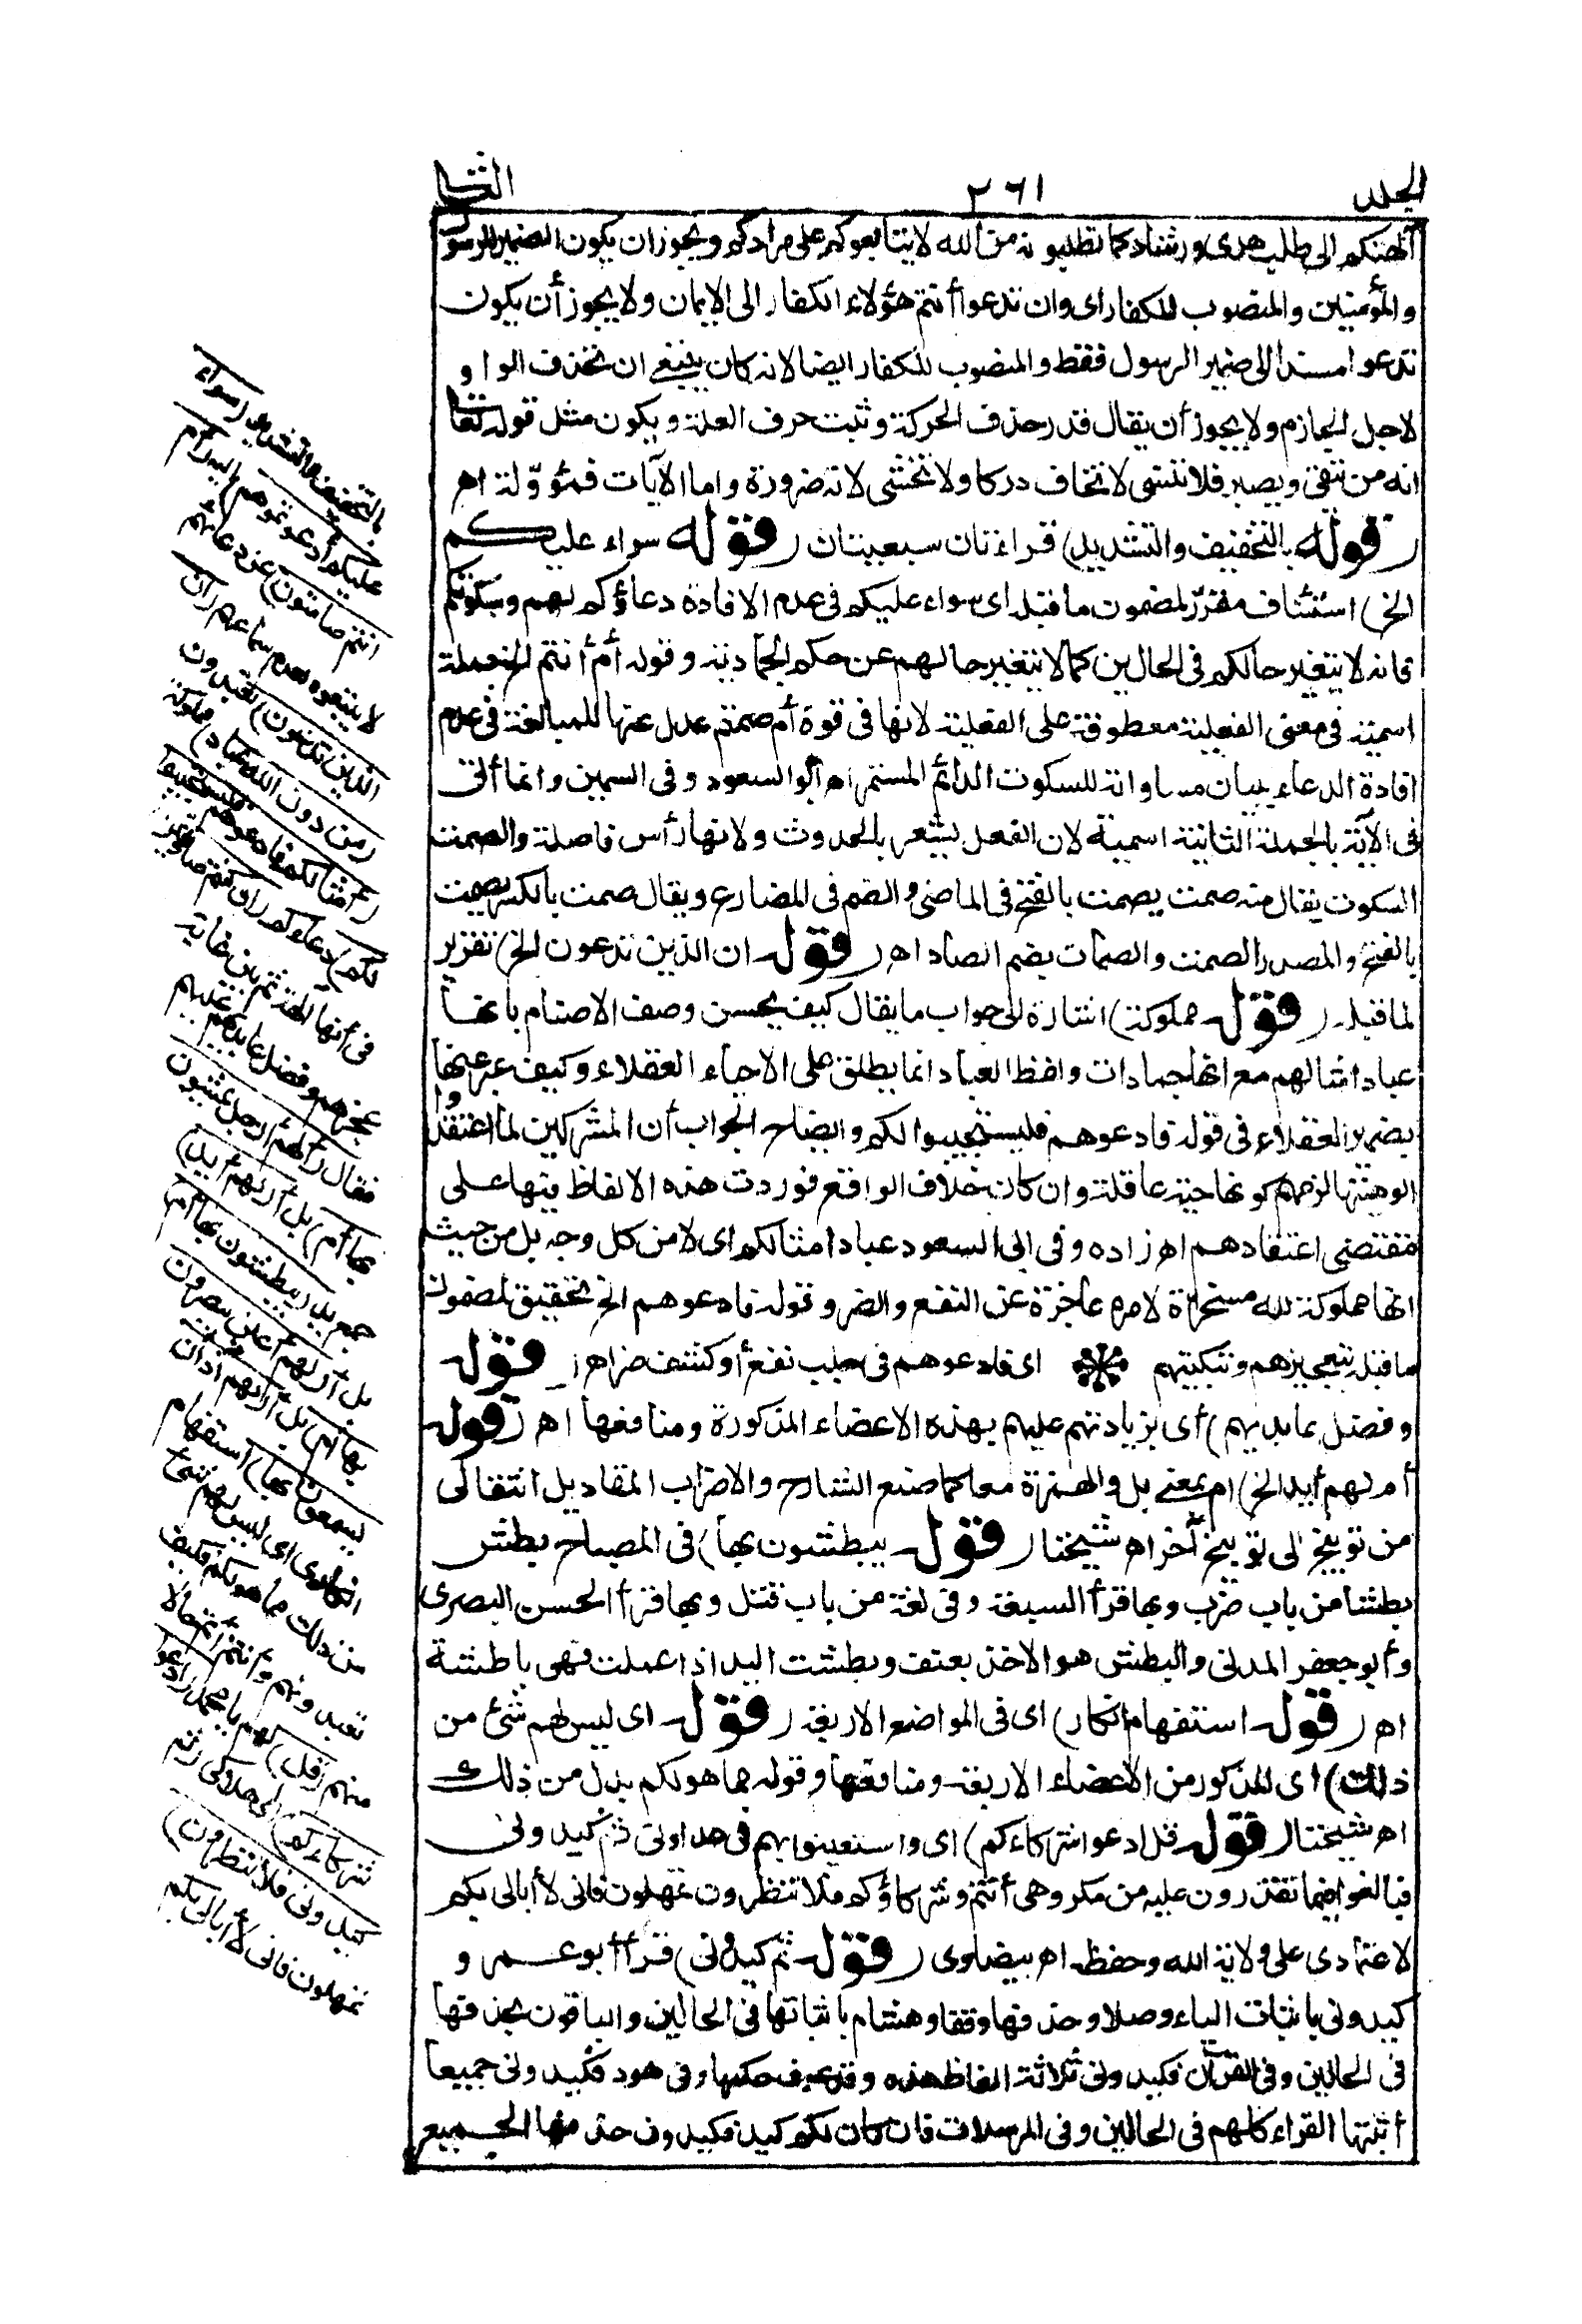 الجلد ٢٦١ الثانى
آلهتكم الى طلب هدى ورشاد كما تطلبونه من الله لا يتابعوكم على مرادكم ويجوز ان يكون الضمير للرسول
والمؤمنين والمنصوب للكفار اى وان تدعوا أنتم هؤلاء الكفار الى الايمان ولا يجوز أن يكون
تدعوا مسندا الى ضمير الرسول فقط والمنصوب للكفار ايضا لانه كان ينبغى ان تحذف الواو
لاجل الجازم ولا يجوز أن يقال قدر حذف الحركة وثبت حرف العلة ويكون مثل قوله تعالى
انه من يتقى ويصبر فلا تنسى لا تخاف دركا ولا تخشى لانه ضرورة واما الآيات فمؤوّلة اهـ
(قوله بالتخفيف والتشديد) قراءتان سبعيتان (قوله سواء عليكم
الخ) استئناف مقرّر لمضمون ما قبله اى سواء عليكم فى عدم الافادة دعاؤكم لهم وسكوتكم
فانه لا يتغير حالكم فى الحالين كما لا يتغير حالهم عن حكم الجمادية وقوله أم أنتم الخ جملة
اسمية فى معنى الفعلية معطوفة على الفعلية لانها فى قوة أم صمتم عدل عنها للمبالغة فى عدم
افادة الدعاء ببيان مساواته للسكوت الدائم المستمر اهـ أبو السعود وفى السمين وانما أتى
فى الآية بالجملة الثانية اسمية لان الفعل يشعر بالحدوث ولانها رأس فاصلة والصمت
السكوت يقال منه صمت يصمت بالفتح فى الماضى والضم فى المضارع ويقال صمت بالكسر يصمت
بالفتح والمصدر الصمت والصمات بضم الصاد اهـ (قوله ان الذين تدعون الخ) تقرير
لما قبله (قوله مملوكة) اشارة الى جواب ما يقال كيف يحسن وصف الاصنام بانها
عباد امثالهم مع انها جمادات ولفظ العباد انما يطلق على الاحياء العقلاء وكيف عبر عنها
بضمير العقلاء فى قوله فادعوهم فليستجيبوا لكم وايضاح الجواب أن المشركين لما اعتقدوا
الوهيتها لزمهم كونها حية عاقلة وان كان خلاف الواقع فوردت هذه الالفاظ فيها على
مقتضى اعتقادهم اهـ زاده وفى ابى السعود عباد امثالكم اى لا من كل وجه بل من حيث
انها مملوكة لله مسخرة لامره عاجزة عن النفع والضر وقوله فادعوهم الخ تحقيق لمضمون
ما قبله بتعجيزهم وتبكيتهم اى فادعوهم فى جلب نفع أو كشف ضر اهـ (قوله
وفضل عابديهم) أى بزيادتهم عليهم بهذه الاعضاء المذكورة ومنافعها اهـ (قوله
أم لهم أيد الخ) ام بمعنى بل والهمزة معا كما صنع الشارح والاضراب المفاد ببل انتقالى
من توبيخ الى توبيخ آخر اهـ شيخنا (قوله يبطشون بها) فى المصباح بطش
بطشا من باب ضرب وبها قرأ السبعة وفى لغة من باب قتل وبها قرأ الحسن البصرى
وأبو جعفر المدنى والبطش هو الاخذ بعنف وبطشت اليد اذا عملت فهى باطشة
اهـ (قوله استفهام انكار) اى فى المواضع الاربعة (قوله اى ليس لهم شئ من
ذلك) اى المذكور من الاعضاء الاربعة ومنافعها وقوله مما هو لكم بدل من ذلك
اهـ شيخنا (قوله قل ادعوا شركاءكم) اى واستعينوا بهم فى عداوتى ثم كيدونى
فبالغوا فيما تقدرون عليه من مكر وهى أنتم وشركاؤكم فلا تنظرون تمهلون فانى لا أبالى بكم
لاعتمادى على ولاية الله وحفظه اهـ بيضاوى (قوله ثم كيدونى) قرأ أبو عمرو
كيدونى باثبات الياء وصلا وحذفها وقفا وهشام باثباتها فى الحالين والباقون بحذفها
فى الحالين وفى القرآن فكيدونى ثلاثة الفاظ هذه وقد عرف حكمها وفى هود فكيدونى جميعا
أثبتها القراء كلهم فى الحالين وفى المرسلات فان كان لكم كيد فكيدون حذفها الجميع
بالتخفيف والتشديد (سواء
عليكم أدعوتموهم) اليه (أم
انتم صامتون) عن دعائهم
لا يتبعوه لعدم سماعهم (ان
الذين تدعون) تعبدون
(من دون الله عباد) مملوكة
(أمثالكم فادعوهم فليستجيبوا
لكم) دعاءكم (ان كنتم صادقين)
فى أنها آلهة ثم بين غاية
عجزهم وفضل عابديهم عليهم
فقال (ألهم أرجل يمشون
بها أم) بل أ (لهم أيد)
جمع يد (يبطشون بها أم)
بل أ (لهم أعين يبصرون
بها أم) بل أ (لهم آذان
يسمعون بها) استفهام
انكارى اى ليس لهم شئ
من ذلك مما هو لكم فكيف
تعبدونهم وأنتم أتم حالا
منهم (قل) لهم يا محمد (ادعوا
شركاءكم) الى هلاكى (ثم
كيدونى فلا تنظرون)
تمهلون فانى لا أبالى بكم